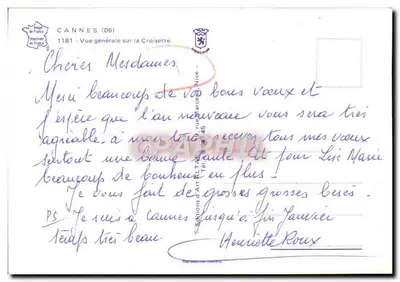 CANNES (06)
1181 - Vue générale sur la Croisette.
Chères Mesdames,
Merci beaucoup de vos bons voeux et
j'espère que l'an nouveau vous sera très
agréable. à mon tour recevez tous mes voeux
surtout une bonne santé, et pour Lise Marie
beaucoup de bonheur en plus.
Je vous fait de grosses grosses bises.
PS Je suis à Cannes jusqu'à fin Janvier
temps très beau
Henriette Roux